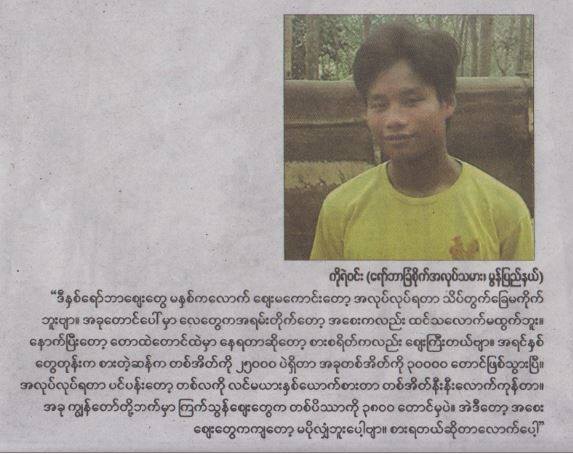 ကိုရဲဝင်း (ရော်ဘာခြံစိုက်အလုပ်သမား၊ မွန်ပြည်နယ်)
“ဒီနှစ်ရော်ဘာဈေးတွေ မနှစ်ကလောက် ဈေးမကောင်းတော့ အလုပ်လုပ်ရတာ သိပ်တွက်ခြေမကိုက်
ဘူးဗျာ။ အခုတောင်ပေါ်မှာ လေတွေကအရမ်းတိုက်တော့ အစေးကလည်း ထင်သလောက်မထွက်ဘူး။
နောက်ပြီးတော့ တောထဲတောင်ထဲမှာ နေရတာဆိုတော့ စားစရိတ်ကလည်း ဈေးကြီးတယ်ဗျာ။ အရင်နှစ်
တွေတုန်းက စားတဲ့ဆန်က တစ်အိတ်ကို ၂၅၀၀၀ ပဲရှိတာ အခုတစ်အိတ်ကို ၃၀၀၀၀ တောင်ဖြစ်သွားပြီ။
အလုပ်လုပ်ရတာ ပင်ပန်းတော့ တစ်လကို လင်မယားနှစ်ယောက်စားတာ တစ်အိတ်နီးနီးလောက်ကုန်တာ။
အခု ကျွန်တော်တို့ဘက်မှာ ကြက်သွန်ဈေးတွေက တစ်ပိဿာကို ၃၈၀၀ တောင်မှပဲ။ အဲဒီတော့ အစေး
ဈေးတွေကကျတော့ မပိုလျှံဘူးပေါ့ဗျာ။ စားရတယ်ဆိုတာလောက်ပေါ့”